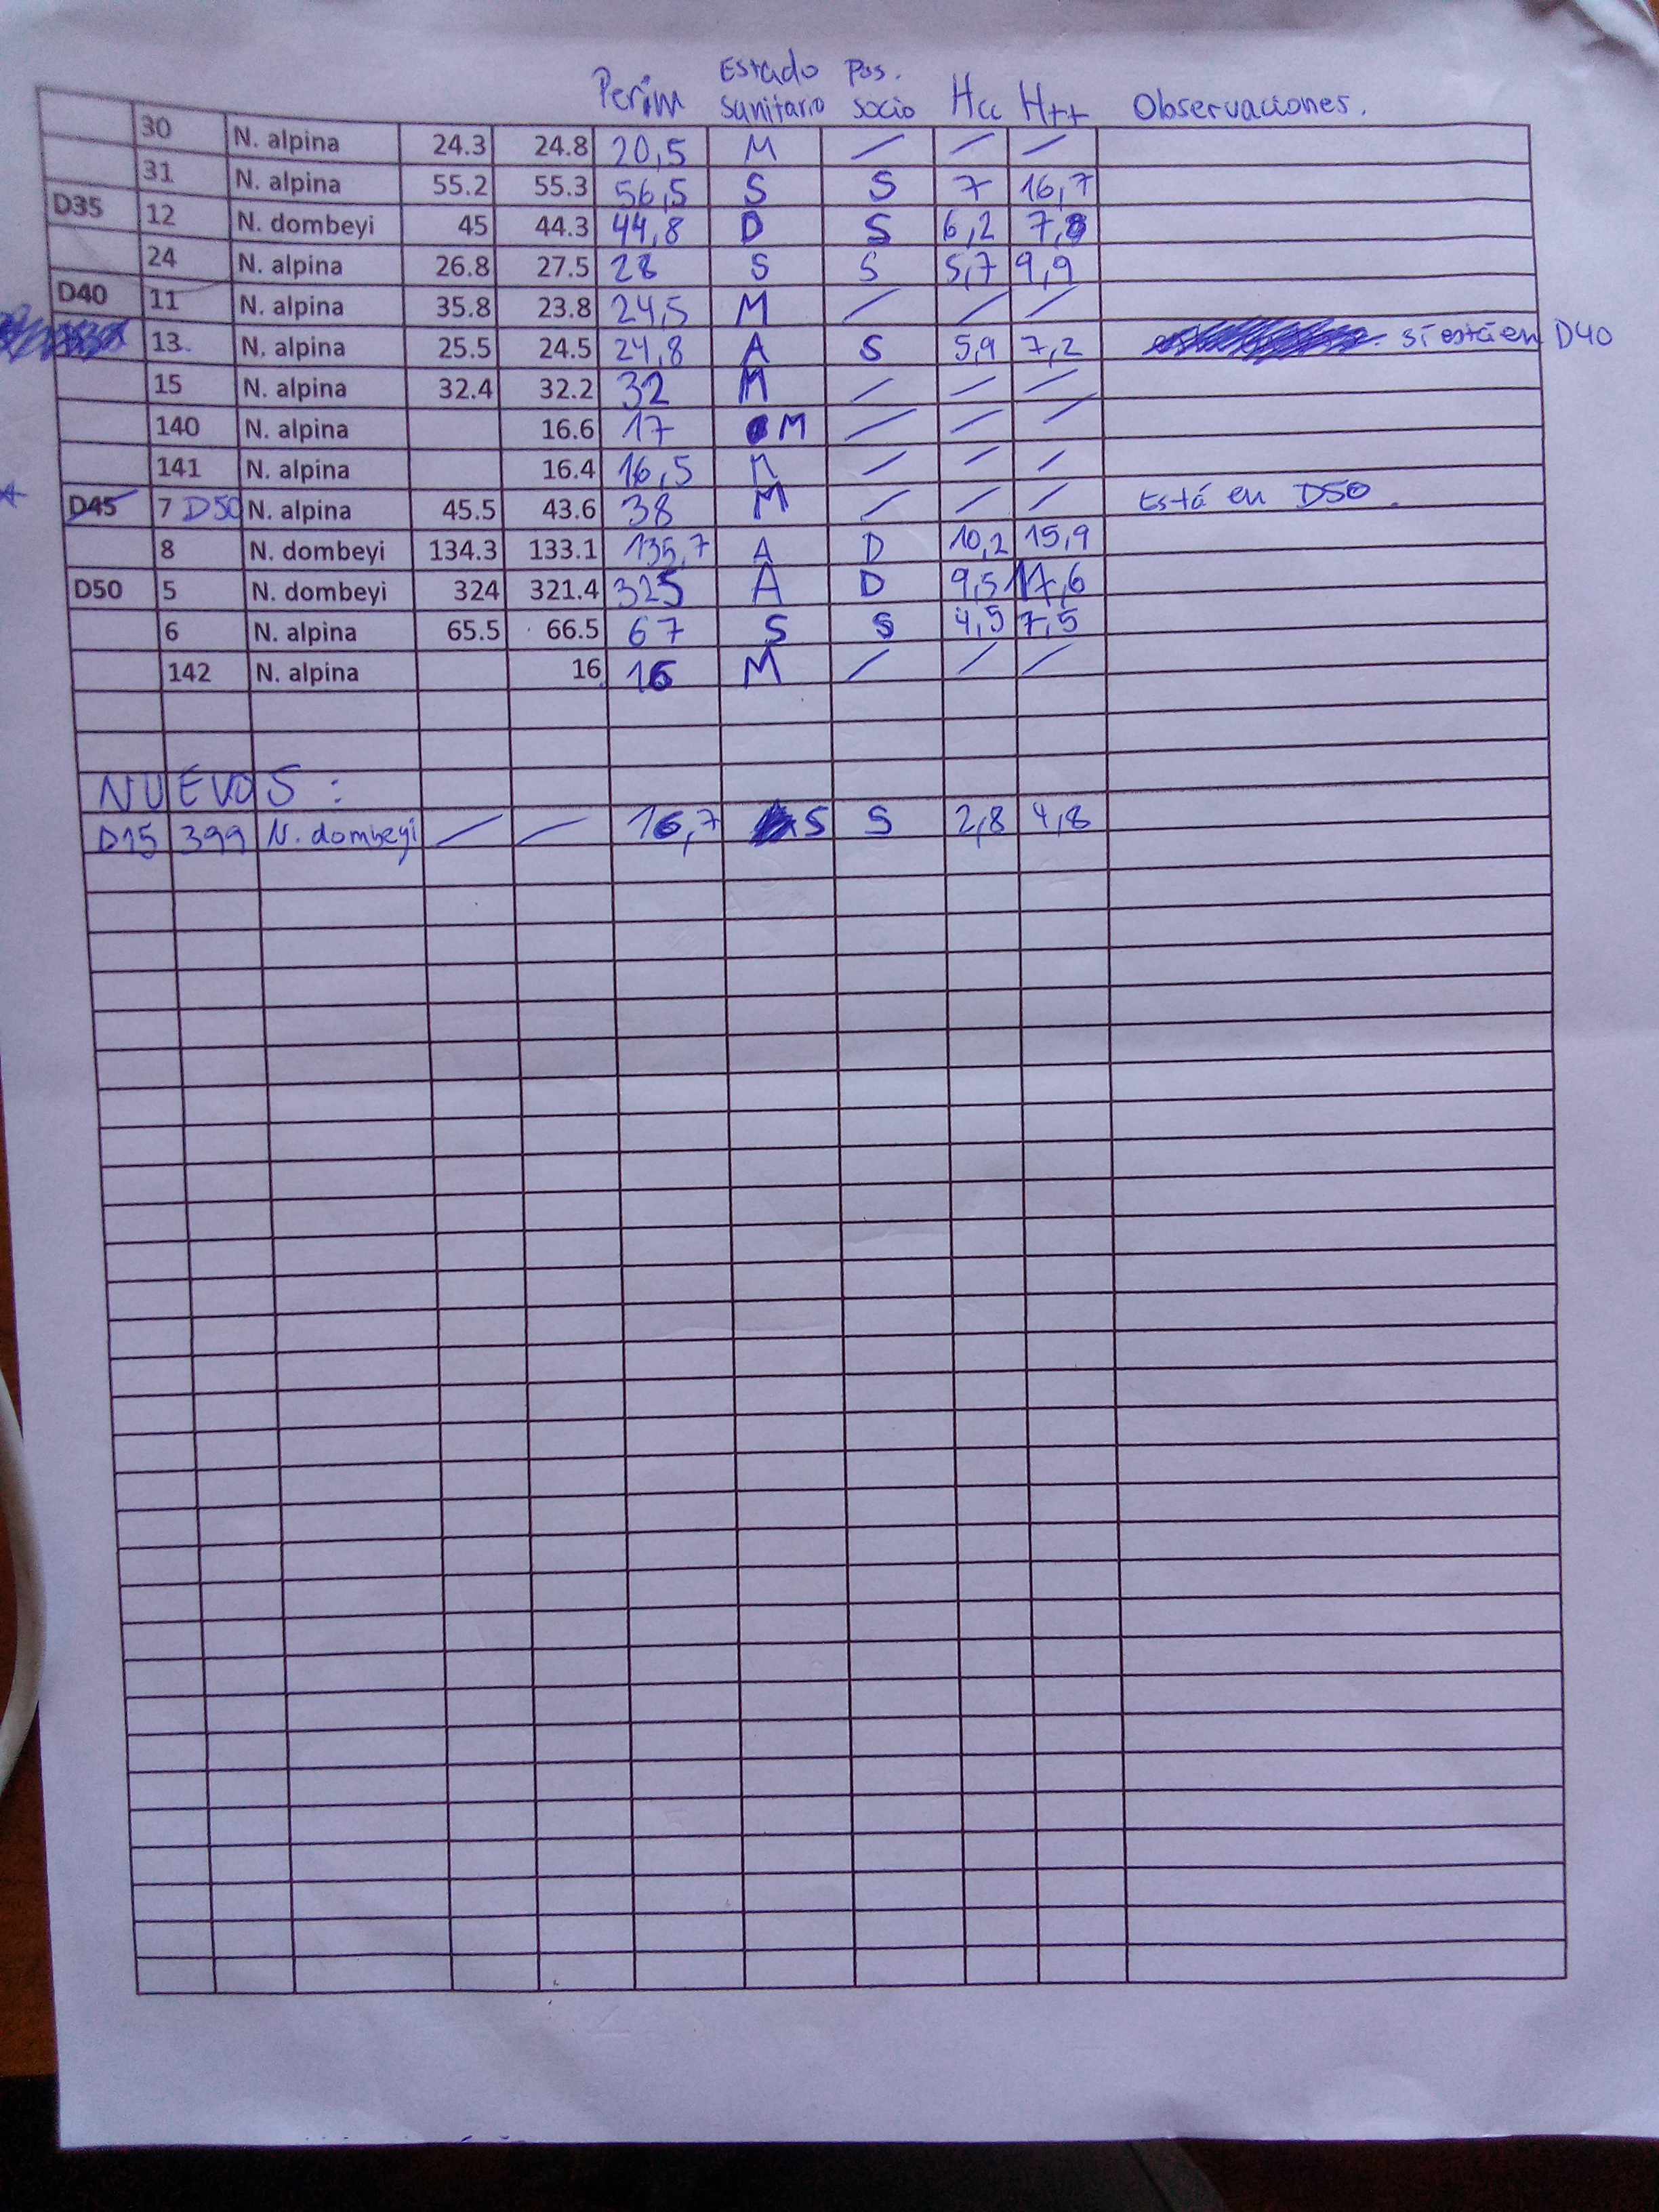 Perim Estado Sanitario Pos. Socio Hcc Htt Observaciones.
30 N. alpina 24.3 24.8 20,5 M / / /
31 N. alpina 55.2 55.3 56,5 S S 7 16,7
D35 12 N. dombeyi 45 44.3 44,8 D S 6,2 7,8
24 N. alpina 26.8 27.5 28 S S 5,7 9,9
D40 11 N. alpina 35.8 23.8 24,5 M / / /
13 N. alpina 25.5 24.5 24,8 A S 5,9 7,2 si está en D40
15 N. alpina 32.4 32.2 32 M / / /
140 N. alpina 16.6 17 M / / /
141 N. alpina 16.4 16,5 M / / /
D45 7 D50 N. alpina 45.5 43.6 38 M / / / Está en D50.
8 N. dombeyi 134.3 133.1 135,7 A D 10,2 15,9
D50 5 N. dombeyi 324 321.4 325 A D 9,5 17,6
6 N. alpina 65.5 66.5 67 S S 4,5 7,5
142 N. alpina 16 16 M / / /
NUEVOS :
D15 399 N. dombeyi / / 16,7 S S 2,8 4,8